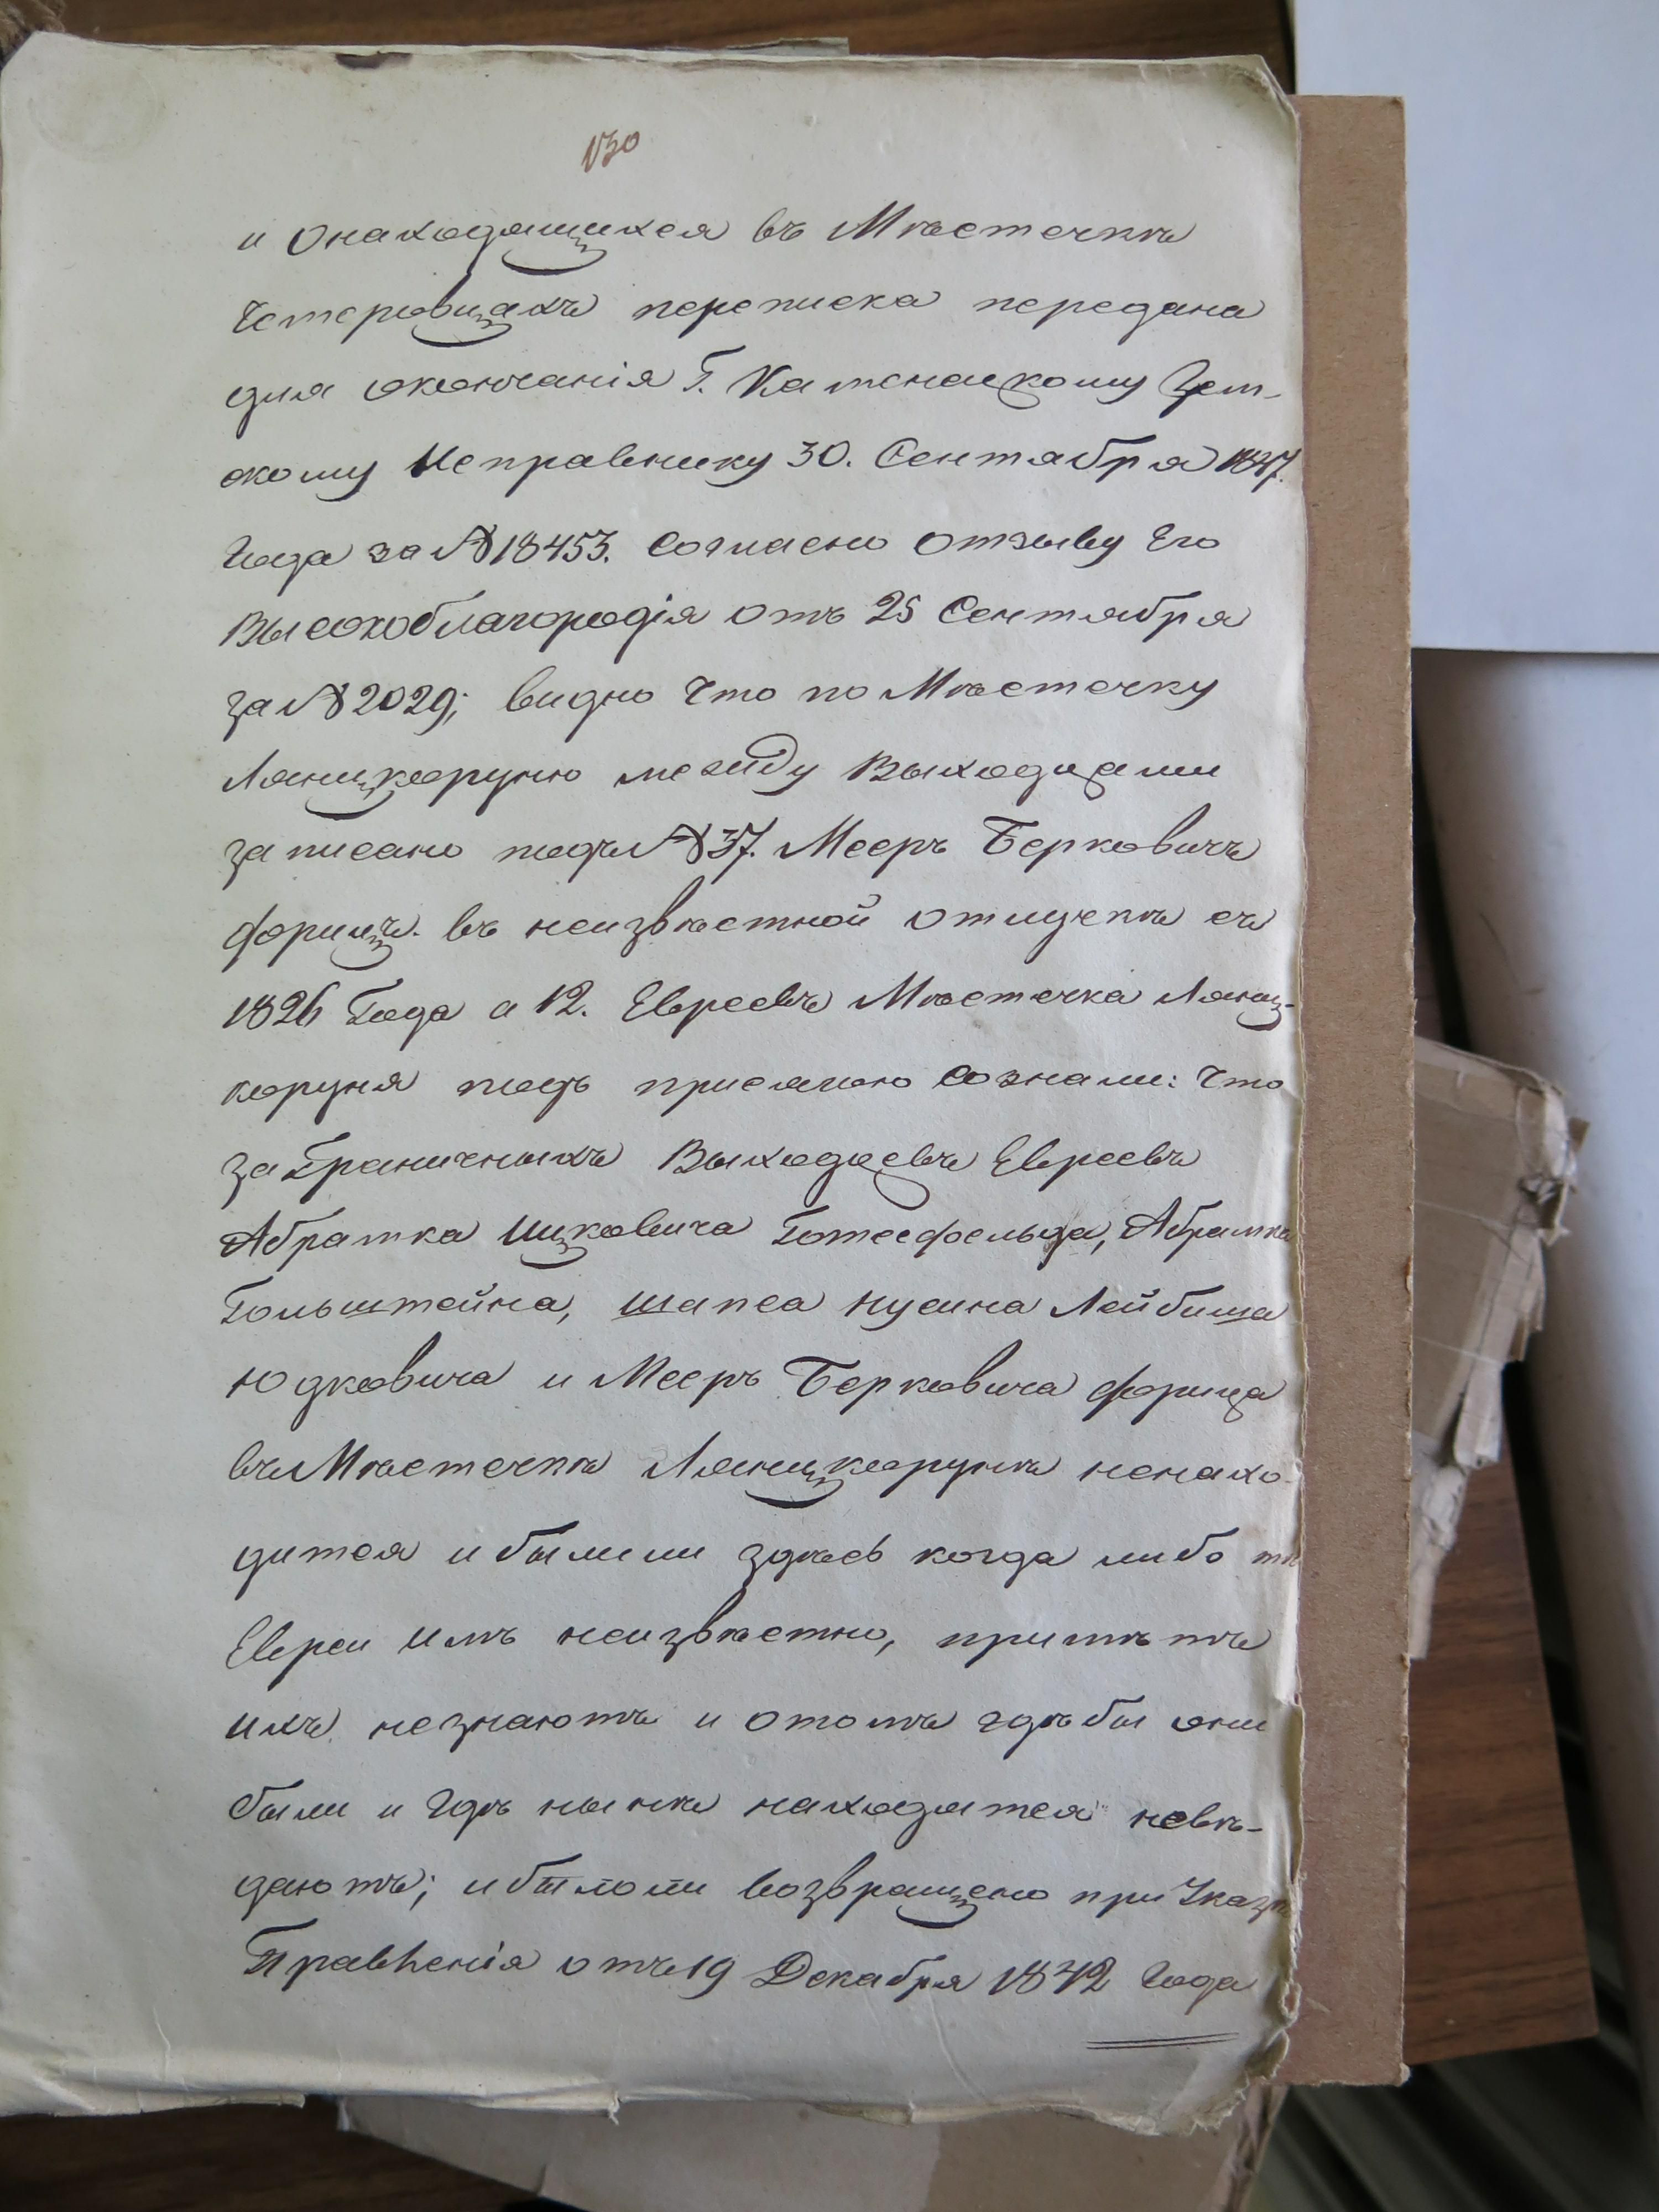 130
и онаходящихся въ Мѣстечкѣ
Чемеровцахъ переписка передана
для окончанія Г. Каменецкому Зем-
скому Исправнику 30. Сентября 1847.
Года за № 18453. Согласно отзыву Его
Высокоблагородія отъ 25 Сентября
за № 2029; видно что по Мѣстечку
Лянцкоруню между Выходцами
записано подъ № 37. Мееръ Берковичъ
Форицъ въ неизвѣстной отлучкѣ съ
1826 Года а 12. Евреевъ Мѣстечка Лянц-
коруня подъ присягою сознали: что
заграничныхъ Выходцевъ Евреевъ
Абрамка Ицковича Готесфельда, Абрамка
Гольштейна, Шапса Нусина Лейбиша
Юдковича и Мееръ Берковича Форица
въ Мѣстечкѣ Лянцкорунѣ ненахо-
дится и былили здѣсь когда либо тѣ
Евреи имъ неизвѣстно, примѣтъ
ихъ незнаютъ и отомъ гдѣ бы они
были и гдѣ нынѣ находятся невѣ-
даютъ; и было ли возвращено при Указѣ
Правленія отъ 19 Декабря 1842 Года